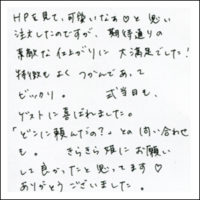 HPを見て、可愛いなぁ♡と思い
注文したのですが、期待通りの
素敵な仕上がりに大満足でした！
特徴もよくつかんであって
ビックリ。 式当日も、
ゲストに喜ばれました。
「どこに頼んだの？」との問い合わせ
も。 きらきら姫にお願い
して良かったと思ってます♡
ありがとうございました。